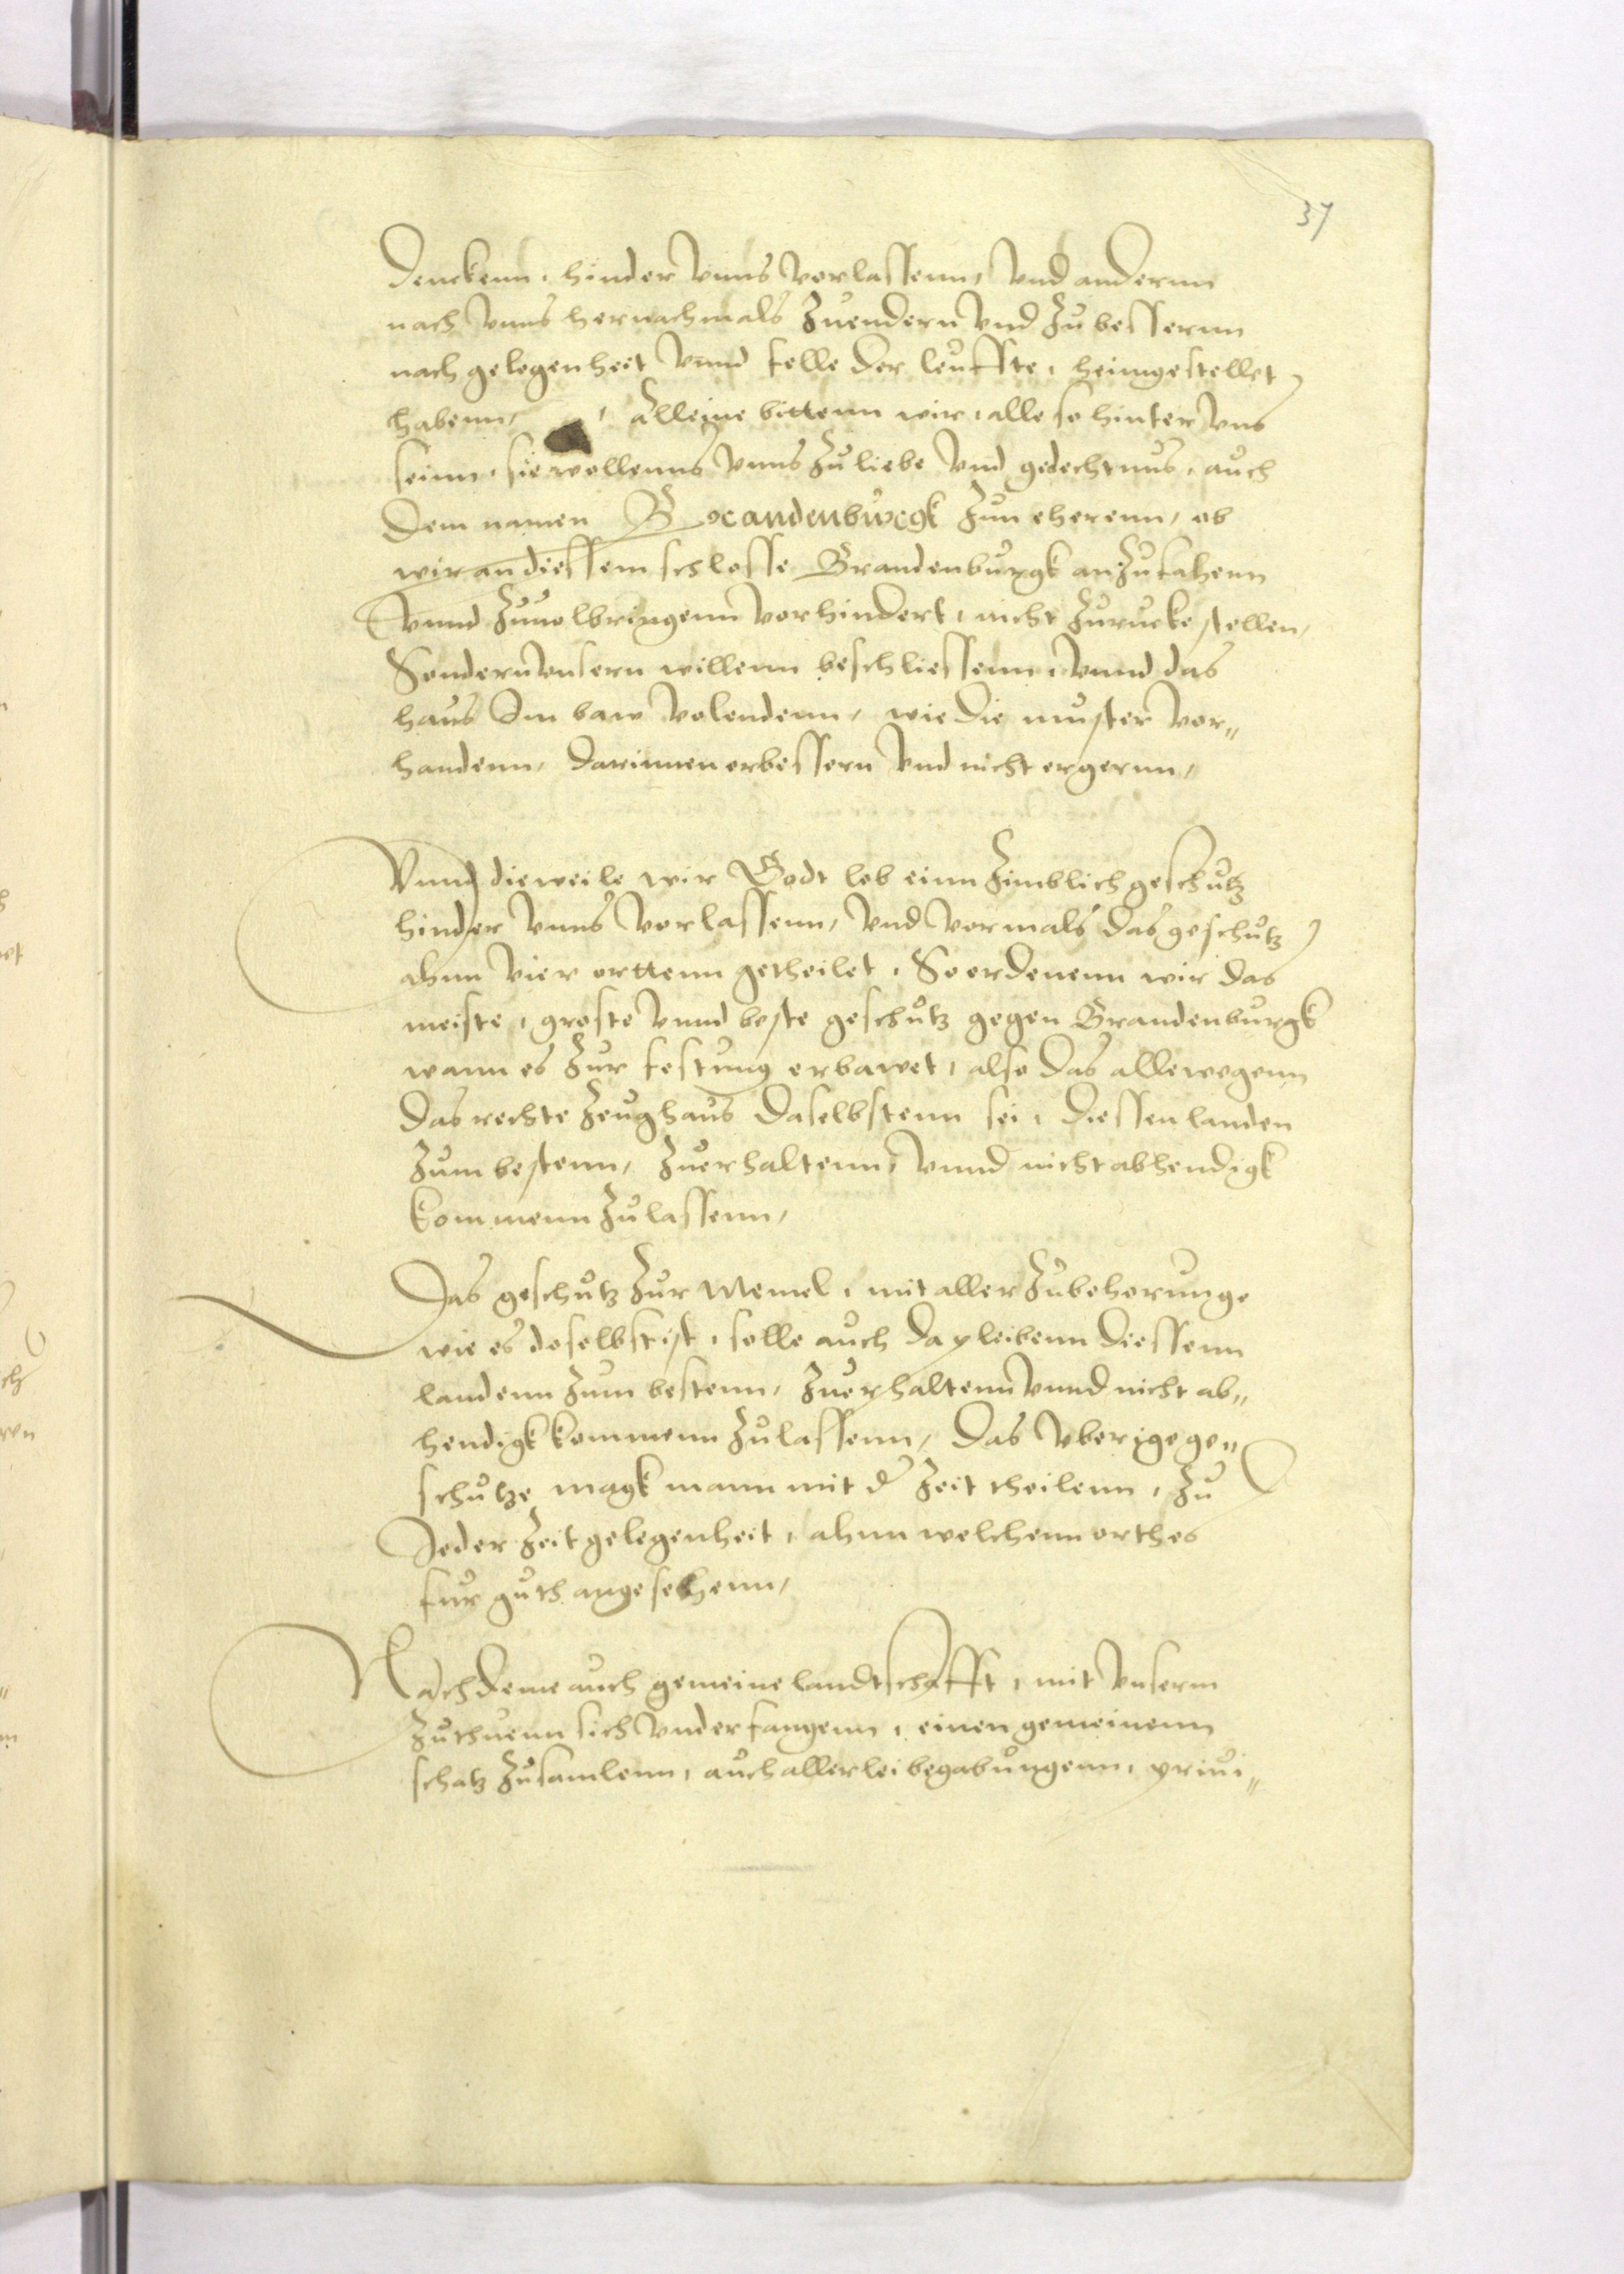 37
denckenn, hinder vnns verlassenn, vnd andernn
nach vnns hernachmals Zuendern vnd Zu bessernn
nach gelegenheit vnnd felle der leuffte, heimgestellet
habenn, Alleine bittenn wir, alle so hinter vns
seinn, sie wollenns vnns Zu liebe vnd gedechtnus, auch
dem namen Brandenburgk Zun eherenn, ob
wir an diessem schlosse Brandenburgk anZufahenn
vnnd Zuuolbringenn vorhindert, nicht Zurucke stellen,
Sondern vnsern willenn beschliessenn, vnnd das
haus Im baw volendenn, wie die muster vor„
handenn, darinnen erbessern vnd nicht ergernn,
Vnnd dieweile wir Godt lob einn Zimblich geschutz
hinder vnns verlassenn, vnd vormals das geschutz
ahnn vier orttenn getheilet, So ordenenn wir das
meiste, groste vnnd beste geschutz gegen Brandenburgk
wann es Zur festung erbawet, also das allewegenn
das rechte Zeughaus daselbstenn sei, diessen landen
Zum bestenn, Zuerhaltenn, vnnd nicht abhendigk
kommenn Zulassenn,
Das geschutz Zur Memel, mit aller Zubehorunge
wie es doselbst ist, solle auch da pleibenn diessenn
landenn Zum bestenn, Zuerhaltenn vnnd nicht ab„
hendigk kommenn Zulassenn, Das vberige ge„
schutze magk mann mit d Zeit theilenn, Zu
Ieder Zeit gelegenheit, ahnn welchenn orth es
fur guth angesehenn,
Nachdeme auch gemeine landtschafft, mit vnserm
Zuthuenn sich vnderfangenn, einen gemeinenn
schatz Zusamlenn, auch allerlei begabungenn, priui„